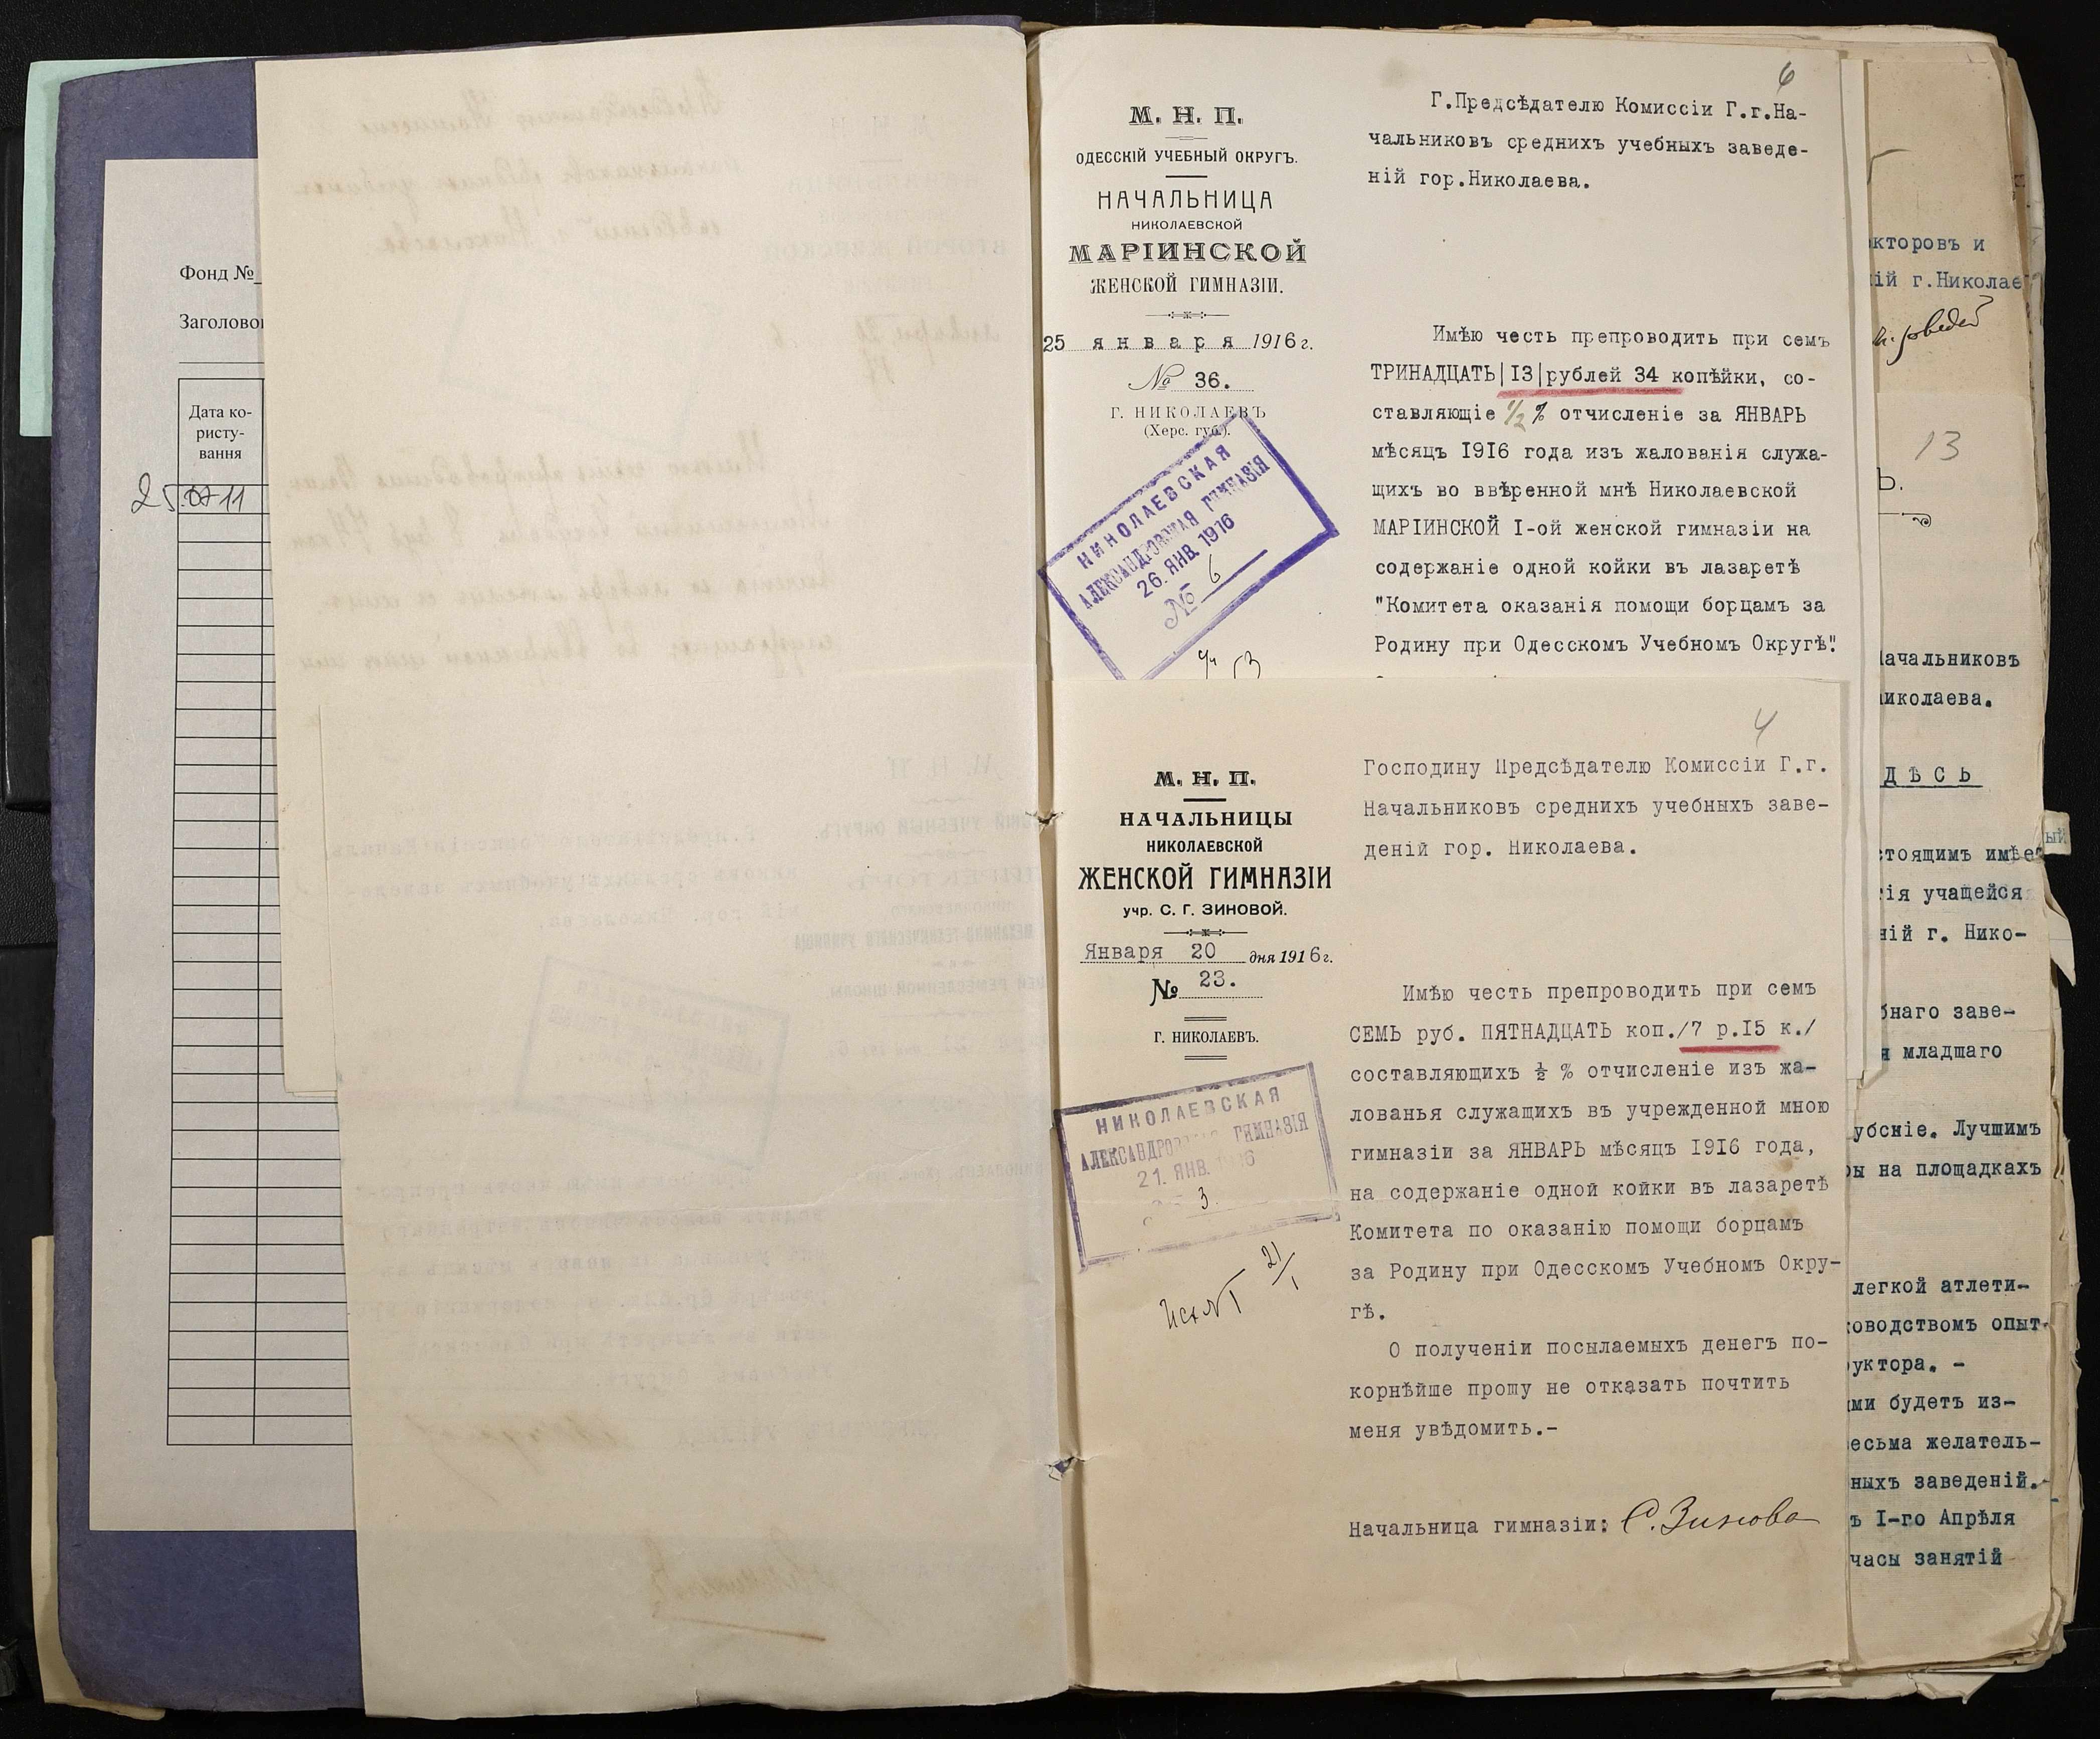 Фонд №
Заголово
Дата ко-
ристу-
вання
25.07 11
6
М. Н. П.
ОДЕССКІЙ УЧЕБНЫЙ ОКРУГЪ.
НАЧАЛЬНИЦА
НИКОЛАЕВСКОЙ
МАРІИНСКОЙ
ЖЕНСКОЙ ГИМНАЗІИ.
25 января 1916 г.
№ 36.
Г. НИКОЛАЕВЪ
(Херс. губ.).
НИКОЛАЕВСКАЯ
АЛЕКСАНДРОВСКАЯ ГИМНАЗІЯ
26. ЯНВ. 1916
№ 6
Г.Предсѣдателю Комиссіи Г.г.На-
чальниковъ среднихъ учебныхъ заведе-
ній гор.Николаева.
Имѣю честь препроводить при семъ
ТРИНАДЦАТЬ|I3|рублей 34 копѣйки, со-
ставляющіе 1/2 % отчисленіе за ЯНВАРЬ
мѣсяцъ I9I6 года изъ жалованія служа-
щихъ во ввѣренной мнѣ Николаевской
МАРІИНСКОЙ I-ой женской гимназіи на
содержаніе одной койки въ лазаретѣ
"Комитета оказанія помощи борцамъ за
Родину при Одесскомъ Учебномъ Округѣ".
4
М. Н. П.
НАЧАЛЬНИЦЫ
НИКОЛАЕВСКОЙ
ЖЕНСКОЙ ГИМНАЗІИ
учр. С. Г. ЗИНОВОЙ.
Января 20 дня 1916 г.
№ 23.
Г. НИКОЛАЕВЪ.
НИКОЛАЕВСКАЯ
АЛЕКСАНДРО ГИМНАЗІЯ
21. ЯНВ. 16
3
21/I
Господину Предсѣдателю Комиссіи Г.г.
Начальниковъ среднихъ учебныхъ заве-
деній гор. Николаева.
Имѣю честь препроводить при семъ
СЕМЬ руб. ПЯТНАДЦАТЬ коп./7 р.I5 к./
составляющихъ ½ % отчисленіе изъ жа-
лованья служащихъ въ учрежденной мною
гимназіи за ЯНВАРЬ мѣсяцъ I9I6 года,
на содержаніе одной койки въ лазаретѣ
Комитета по оказанію помощи борцамъ
за Родину при Одесскомъ Учебномъ Окру-
гѣ.
О полученіи посылаемыхъ денегъ по-
корнѣйше прошу не отказать почтить
меня увѣдомить.-
Начальница гимназіи: С. Зинова
кторовъ и
ій г.Николае
13
Ь.
ачальниковъ
иколаева.
ДѢСЬ
стоящимъ имѣе
ія учащейся
ній г. Нико-
бнаго заве-
я младшаго
убскіе. Лучшимъ
ы на площадкахъ
легкой атлети-
оводствомъ опыт-
уктора. -
ми будетъ из-
есьма желатель-
ныхъ заведеній.-
ъ I-го Апрѣля
часы занятій
ый